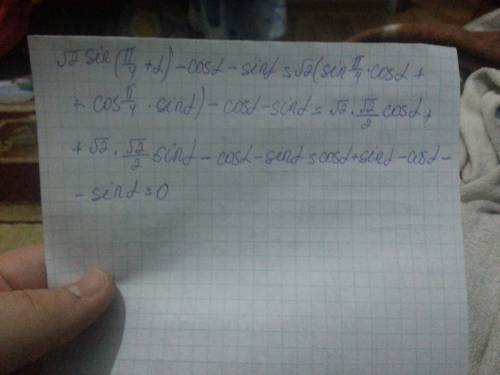 √2 sin(π/4 + α) - cosα - sinα = √2(sin π/4 · cosα +
+ cos π/4 · sinα) - cosα - sinα = √2 · √2/2 cosα +
+ √2 · √2/2 sinα - cosα - sinα = cosα + sinα - cosα -
- sinα = 0